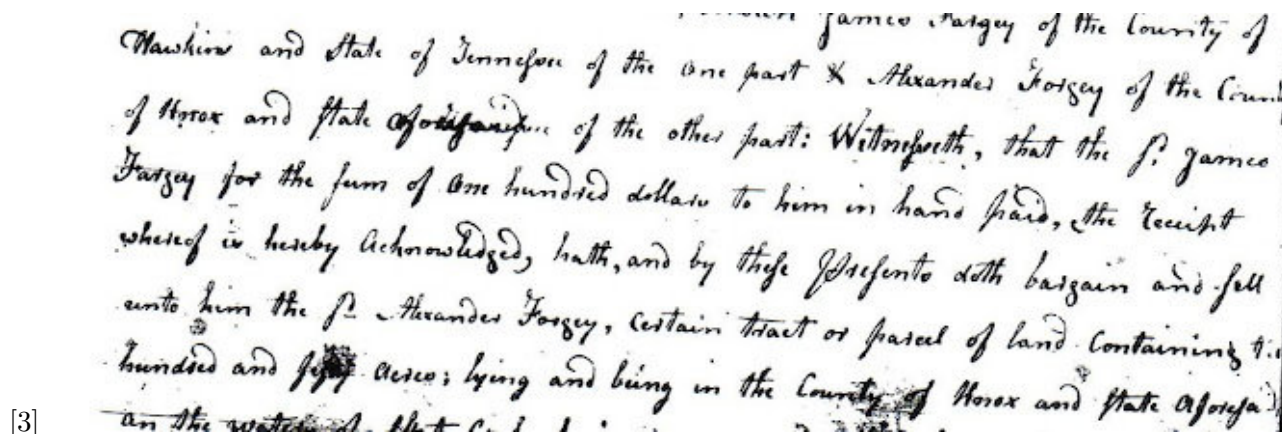 James Forgey of the County of
Hawkins and State of Tennessee of the one part & Alexander Forgey of the Coun
of Knox and State aforesaid of the other part: Witnesseth, that the sd. James
Forgey for the sum of One hundred dollars to him in hand paid, the receipt
whereof is hereby Acknowledged, hath, and by these Presents doth bargain and sell
unto him the sd Alexander Forgey, Certain tract or parcel of land Containing
hundred and fifty Acres; lying and being in the County of Knox and State Aforesa
on the waters of
[3]